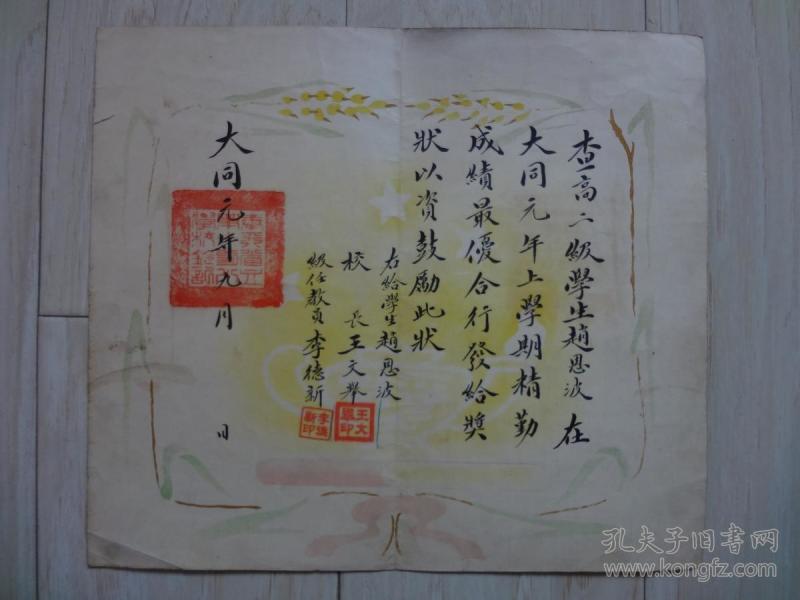 查高二級學生趙恩波在
大同元年上學期精勤
成績最優合行發給獎
狀以資鼓勵此狀
右給學生趙恩波
校長王文舉
王文舉印
級任教員李德新
李德新印
大同元年九月 日
孔夫子旧书网
www.kongfz.com